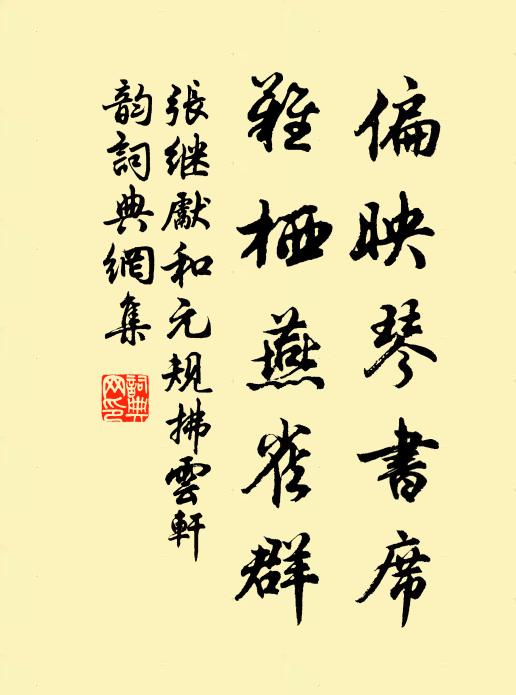 偏映琴書席
難栖燕雀群
張继獻和元規拂雲軒
韵詞典網集
詞典網印